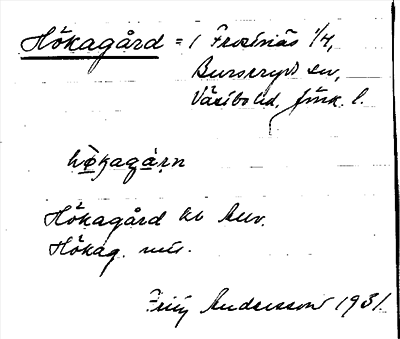 Hökagård = i Frosinäs 1/4,
Burseryds sn,
Västbo hd, Jönk. l.
hökagårn
Hökagård kb Auv.
Hökag. mtl.
Andersson 1931.